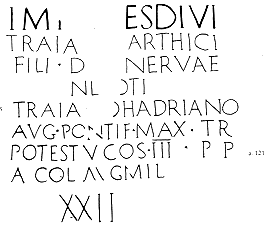 IM ES DIVI
TRAIA ARTHICI
FILI · D NERVAE
N OTI
TRAIA HADRIANO
AVG · PONTIF · MAX · TR
POTEST V COS · III · P P
A COL M G MIL
XXII
a. 121